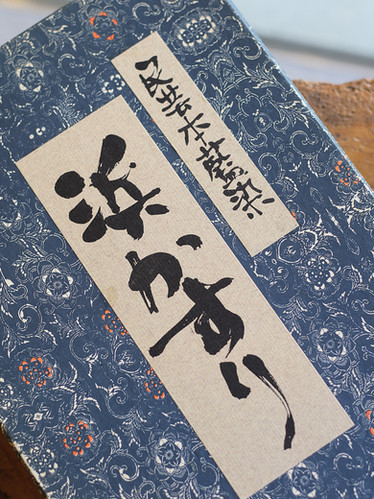 民芸本藍染
浜かすり